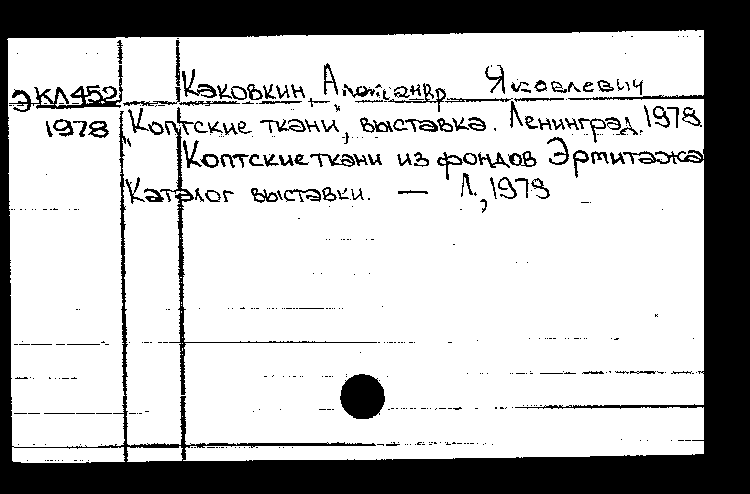 ЭКЛ452 Каковкин, Александр Яковлевич
1978 "Коптские ткани", выставка. Ленинград, 1978
Коптские ткани из фондов Эрмитажа
Каталог выставки. — Л., 1978